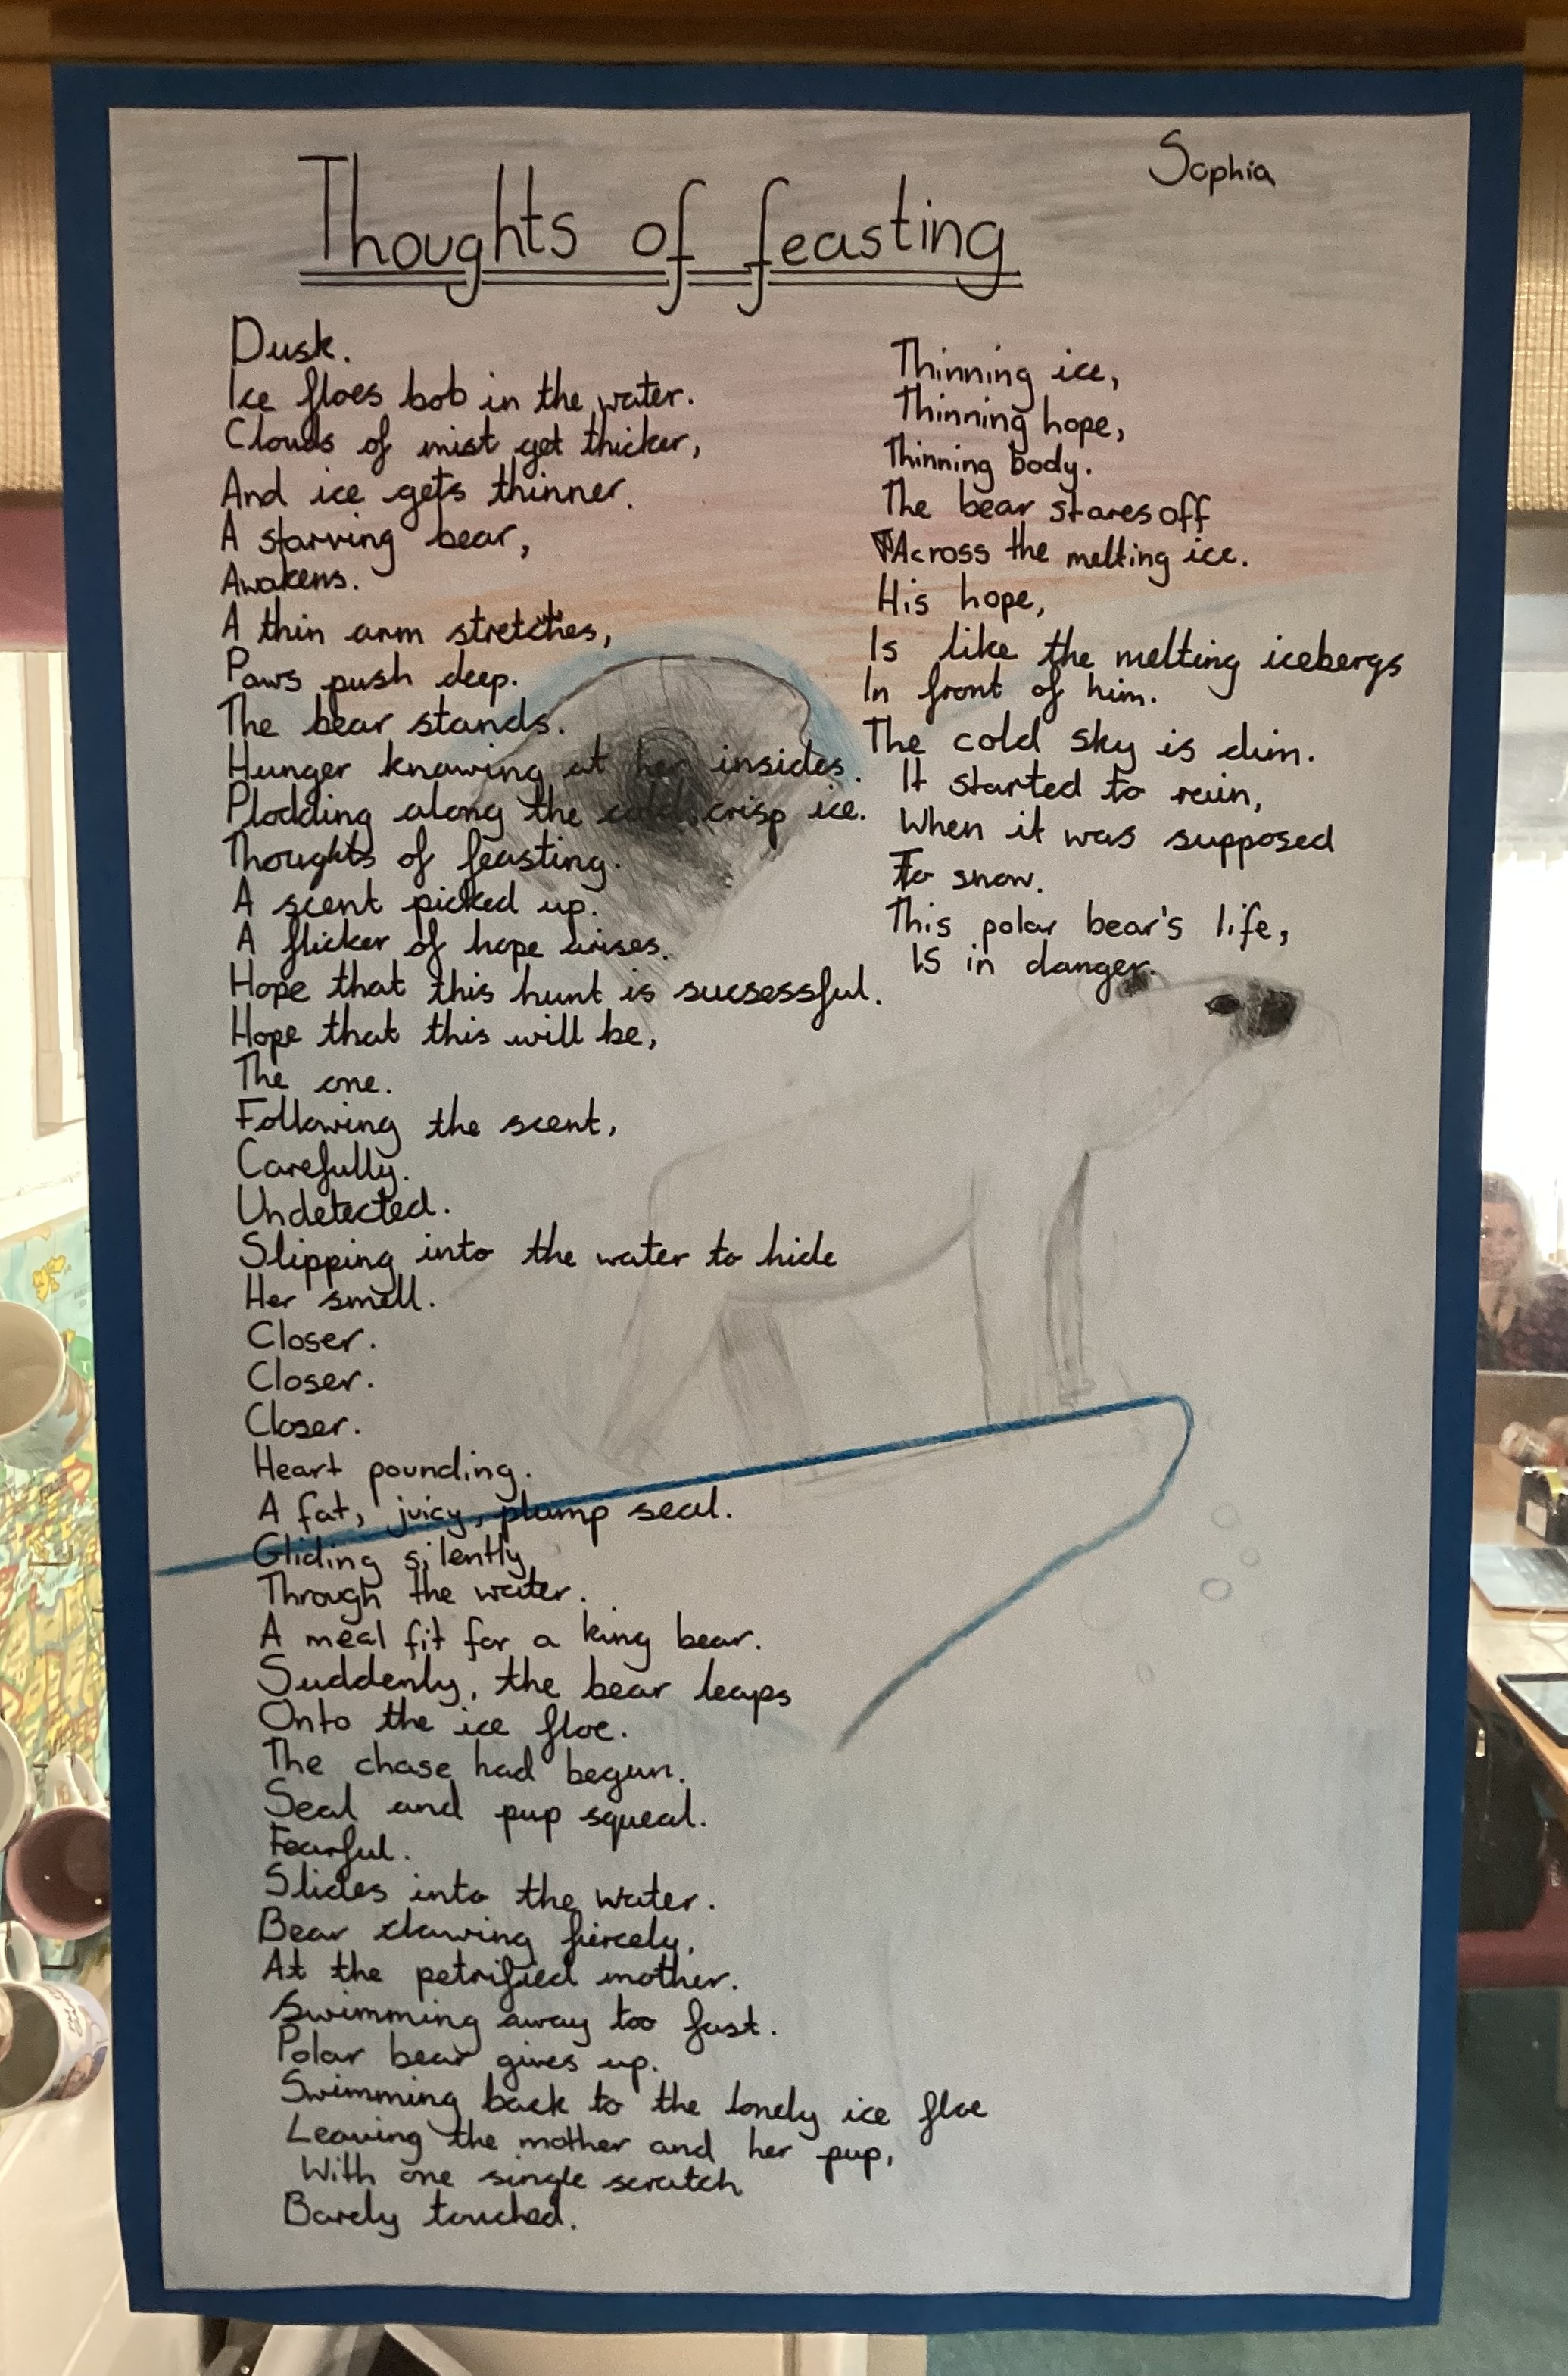 Sophia
Thoughts of feasting
Dusk.
Ice floes bob in the water.
Clouds of mist get thicker,
And ice gets thinner.
A starving bear,
Awakens.
A thin arm stretches,
Paws push deep.
The bear stands.
Hunger knawing at her insides.
Plodding along the cold, crisp ice.
Thoughts of feasting.
A scent picked up.
A flicker of hope arises.
Hope that this hunt is sucsessful.
Hope that this will be,
The one.
Following the scent,
Carefully.
Undetected.
Slipping into the water to hide
Her smell.
Closer.
Closer.
Closer.
Heart pounding.
A fat, juicy, plump seal.
Gliding silently
Through the water.
A meal fit for a king bear.
Suddenly, the bear leaps
Onto the ice floe.
The chase had begun.
Seal and pup squeal.
Fearful.
Slides into the water.
Bear clawing fiercely,
At the petrified mother.
Swimming away too fast.
Polar bear gives up.
Swimming back to the lonely ice floe
Leaving the mother and her pup,
With one single scratch
Barely touched.
Thinning ice,
Thinning hope,
Thinning body.
The bear stares off
Across the melting ice.
His hope,
Is like the melting icebergs
In front of him.
The cold sky is dim.
It started to rain,
When it was supposed
To snow.
This polar bear's life,
Is in danger.